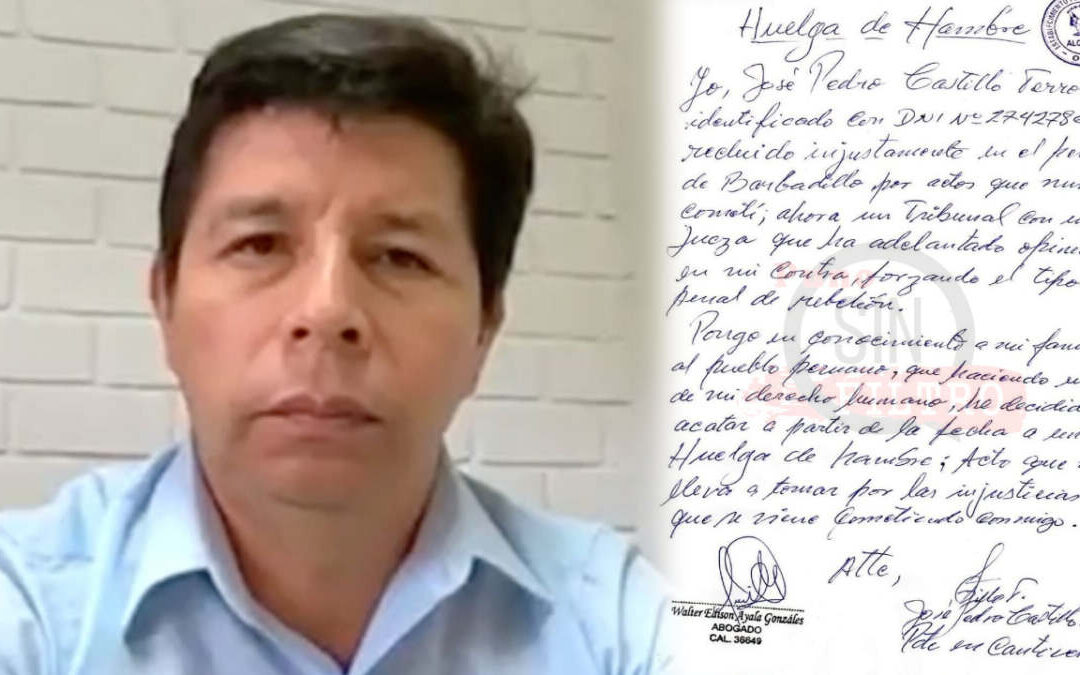 Huelga de Hambre
Yo, José Pedro Castillo Terro
identificado con DNI Nº 274278
recluido injustamente en el pe
de Barbadillo por actos que nu
cometí; ahora un Tribunal con u
Jueza que ha adelantado opin
en mi contra, forzando el tipo
penal de rebelión.
Pongo en conocimiento a mi fam
al pueblo peruano, que haciendo u
de mi derecho humano, he decidid
acatar a partir de la fecha a un
Huelga de hambre; Acto que
lleva a tomar por las injusticias
que se viene cometiendo conmigo.
Atte,
Walter Edison Ayala Gonzáles
ABOGADO
CAL. 36649
José Pedro Castillo
Pdte en Cautive
SIN
FILTRO